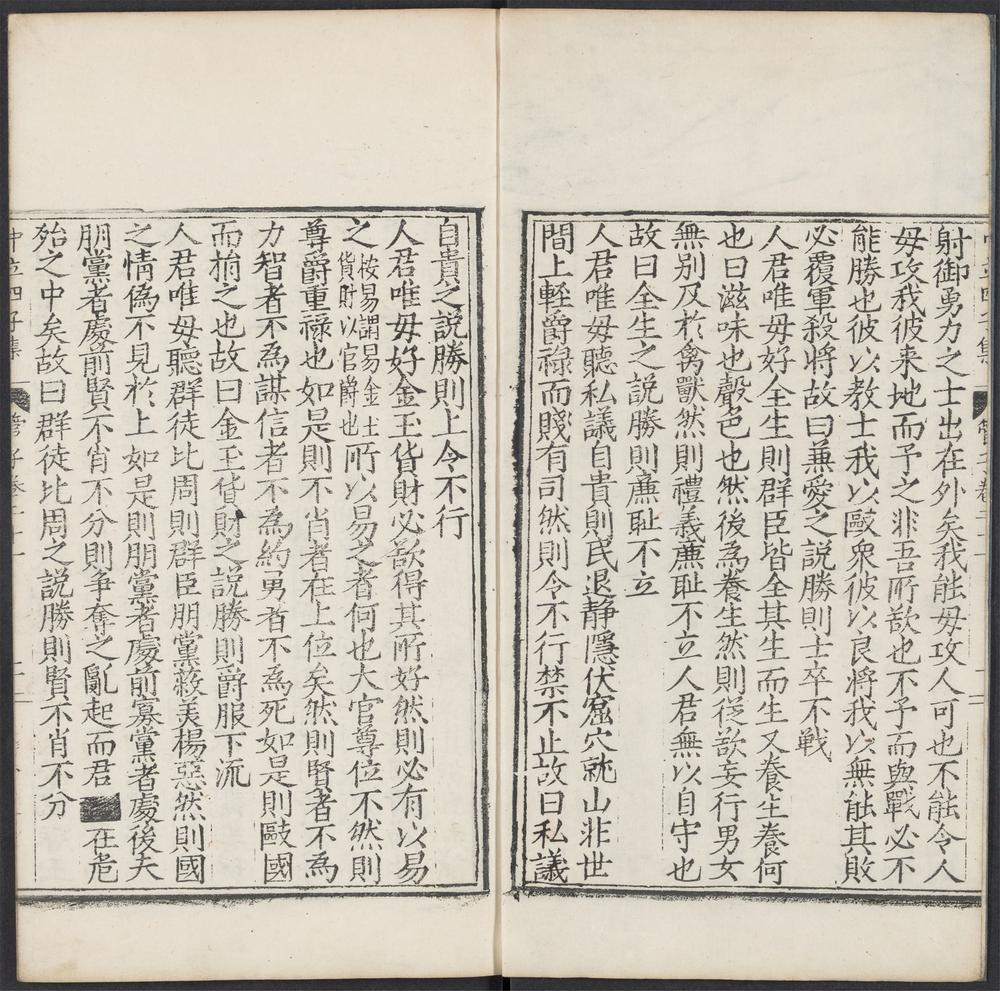 射御勇力之士出在外矣我能毋攻人可也不能令人
毋攻我彼来地而予之非吾所欲也不予而與戰必不
能勝也彼以教士我以敺衆彼以良將我以無能其敗
必覆軍殺將故曰兼愛之説勝則士卒不戰
人君唯毋好全生則群臣皆全其生而生又養生養何
也曰滋味也聲色也然後為養生然則従欲妄行男女
無别及於禽獸然則禮義亷耻不立人君無以自守也
故曰全生之説勝則亷耻不立
人君唯毋聽私議自貴則民退静隱伏窟穴就山非世
間上輕爵祿而賤有司然則令不行禁不止故曰私議
自貴之説勝則上令不行
人君唯毋好金玉貨財必欲得其所好然則必有以易
之按易謂易金土貨財以官爵也所以易之者何也大官尊位不然則
尊爵重祿也如是則不肖者在上位矣然則賢者不為
力智者不為謀信者不為約勇者不為死如是則敺國
而捐之也故曰金玉貨財之説勝則爵服下流
人君唯毋聽群徒比周則群臣朋黨蔽美揚惡然則國
之情偽不見於上如是則朋黨者處前寡黨者處後夫
朋黨者處前賢不肖不分則争奪之亂起而君在危
殆之中矣故曰群徒比周之説勝則賢不肖不分
中立四子集 管子卷二十一